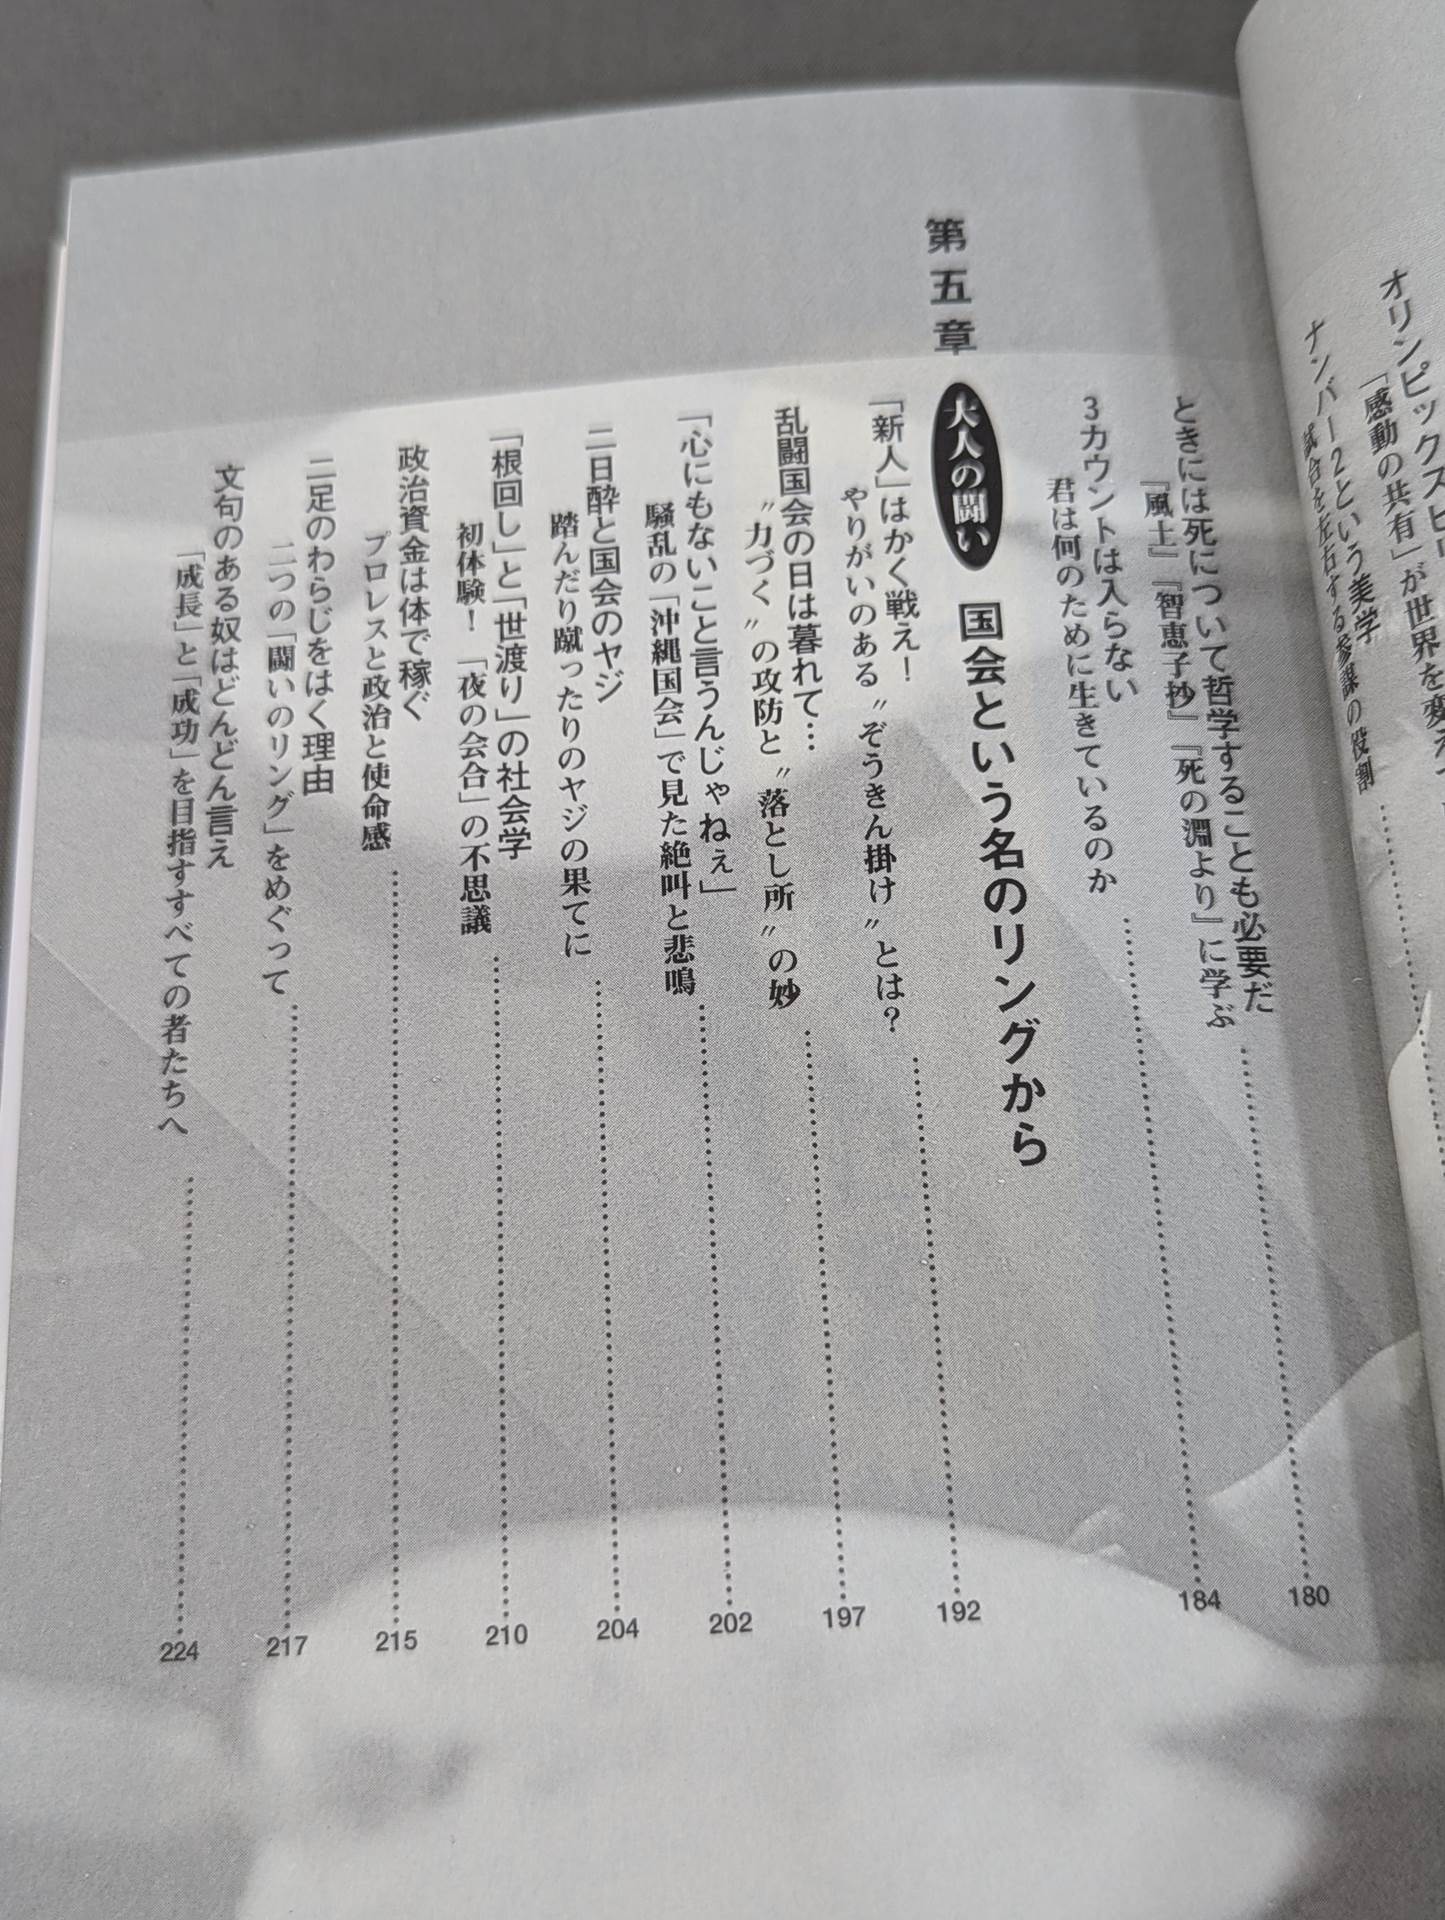 オリンピックスピ
「感動の共有」が世界を変え
ナンバー2という美学
試合を左右する参謀の役割
ときには死について哲学することも必要だ
『風土』『智恵子抄』『死の淵より』に学ぶ
180
3カウントは入らない
君は何のために生きているのか
184
第五章 大人の闘い 国会という名のリングから
「新人」はかく戦え!
やりがいのある〝ぞうきん掛け〟とは?
192
乱闘国会の日は暮れて…
〝力づく〟の攻防と〝落とし所〟の妙
197
「心にもないこと言うんじゃねぇ」
騒乱の「沖縄国会」で見た絶叫と悲鳴
202
二日酔と国会のヤジ
踏んだり蹴ったりのヤジの果てに
204
「根回し」と「世渡り」の社会学
初体験!「夜の会合」の不思議
210
政治資金は体で稼ぐ
プロレスと政治と使命感
215
二足のわらじをはく理由
二つの「闘いのリング」をめぐって
217
文句のある奴はどんどん言え
「成長」と「成功」を目指すすべての者たちへ
224